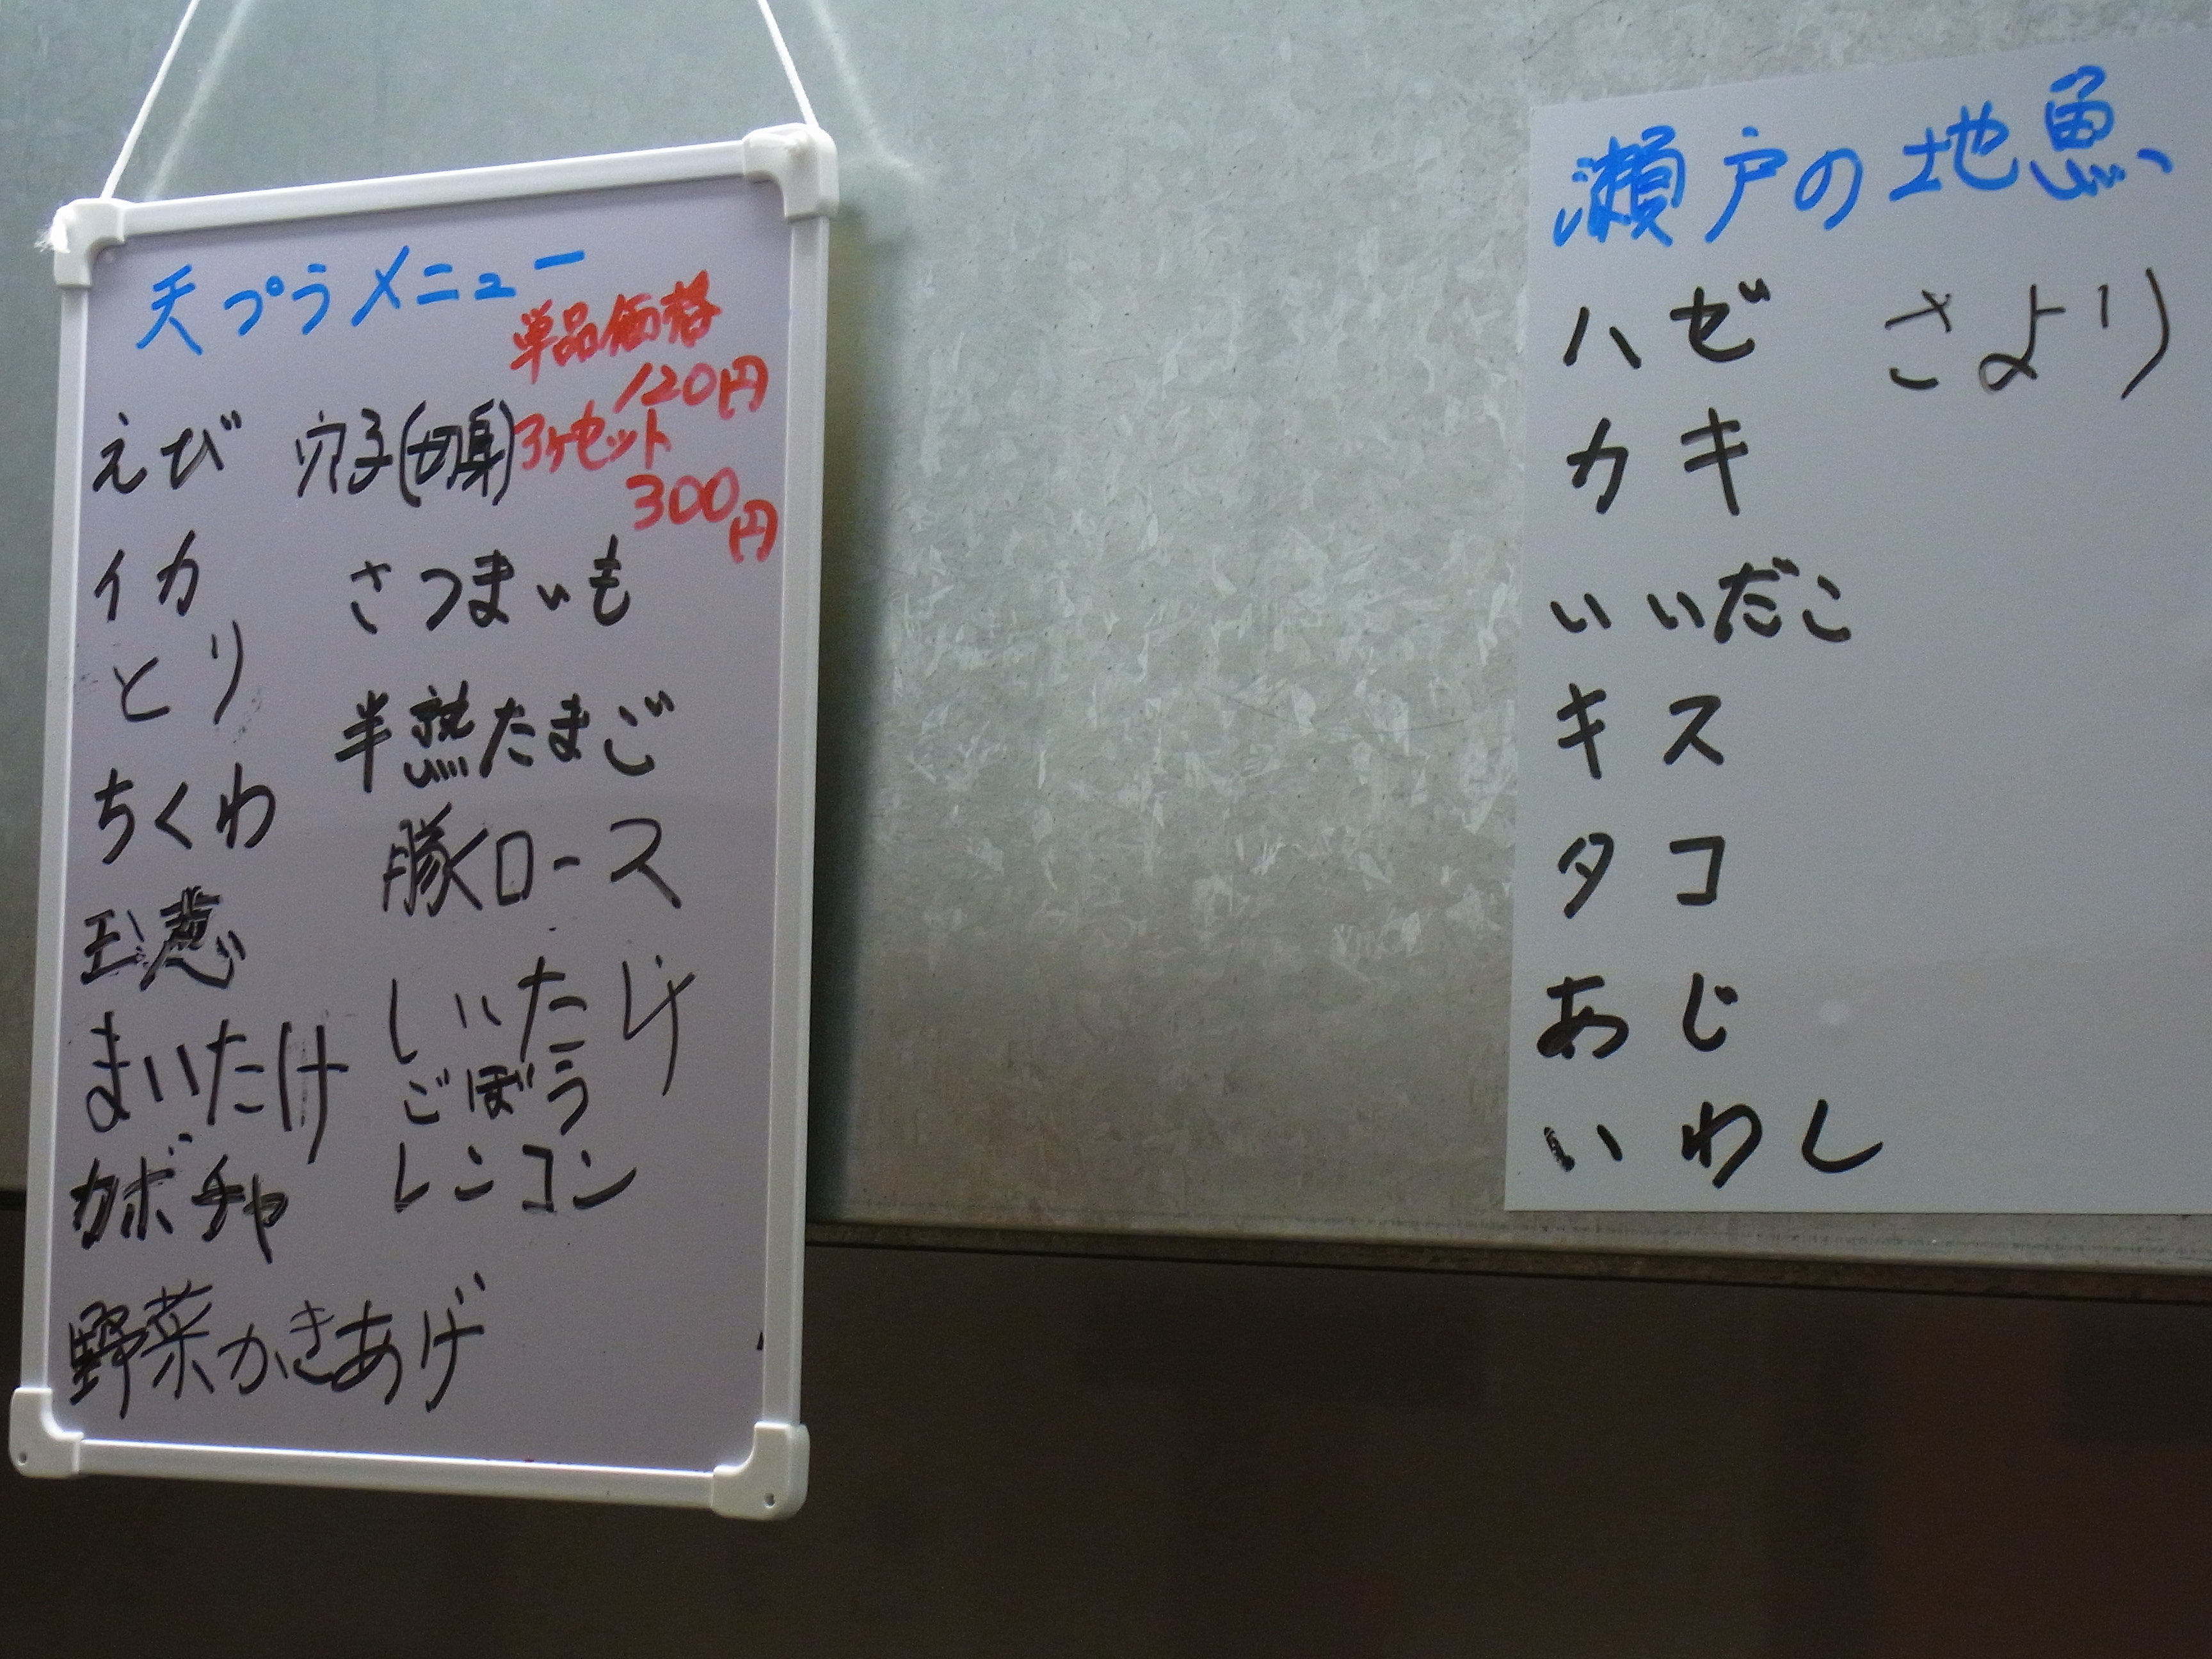 天プラメニュー
単品価格
120円
3ケセット
300円
えび 穴子(切身)
イカ さつまいも
とり
半熟たまご
ちくわ
豚ロース
玉葱
しいたけ
まいたけ
ごぼう
カボチャ レンコン
野菜かきあげ
瀬戸の地魚、
ハゼ さより
カキ
いいだこ
キス
タコ
あじ
いわし